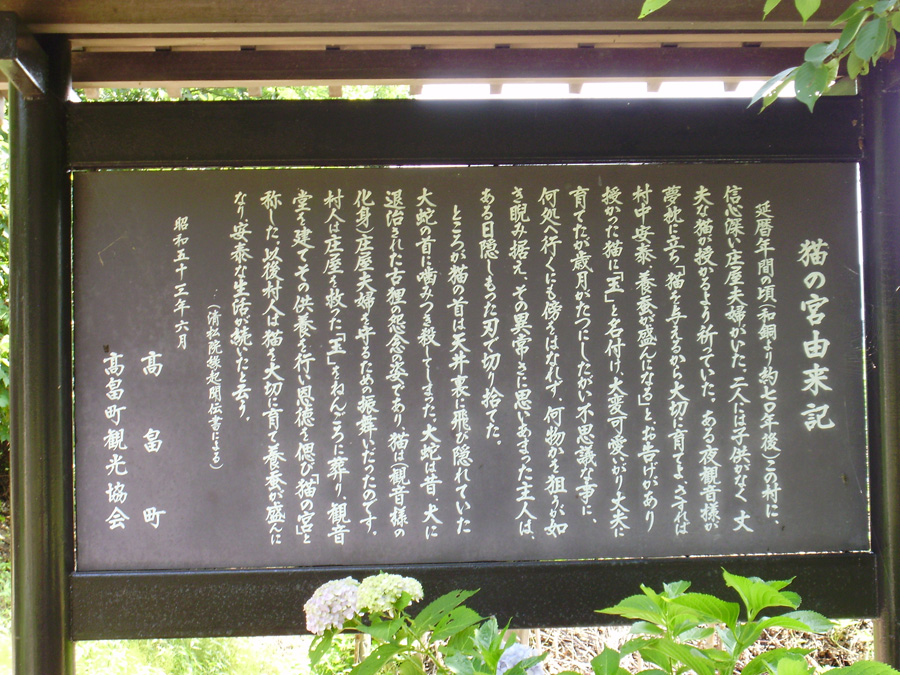 猫の宮由来記
延暦年間の頃(和銅より約七〇年後)この村に、
信心深い庄屋夫婦がいた。二人には子供がなく、丈
夫な猫が授かるよう祈っていた。ある夜観音様が
夢枕に立ち「猫を与えるから大切に育てよ、さすれば
村中安泰、養蚕が盛んになる」とお告げがあり
授かった猫に「玉」と名付け、大変可愛がり丈夫に
育てたが歳月がたつにしたがい不思議な事に、
何処へ行くにも傍をはなれず、何物かを狙うが如
き睨み据え、その異常さに思いあまった主人は、
ある日隠しもった刃で切り捨てた。
ところが猫の首は天井裏に飛び隠れていた
大蛇の首に噛みつき殺してしまった。大蛇は昔、犬に
退治された古狸の怨念の姿であり、猫は(観音様の
化身)庄屋夫婦を守るための振舞いだったのです。
村人は庄屋を救った「玉」をねんごろに葬り、観音
堂を建てその供養を行い恩徳を偲び「猫の宮」と
称した。以後村人は猫を大切に育て養蚕が盛んに
なり、安泰な生活が続いたと云う。
(清松院縁起聞伝書による)
昭和五十三年六月
高畠町
高畠町観光協会